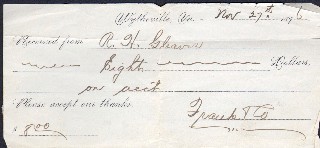 Wytheville, Va. Nov 27th 1896
Received from R. H. Gleaves
Eight Dollars,
on acct
Please accept our thanks.
$8.00